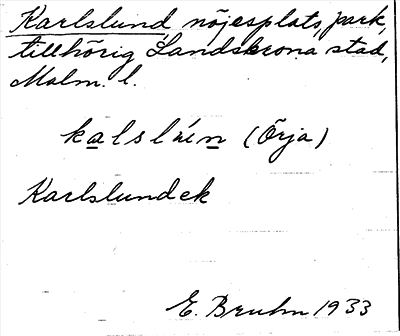 Karlslund, nöjesplats, park,
tillhörig Landskrona stad,
Malm. l.
(Örja)
Karlslund ek
E. Bruhn 1933